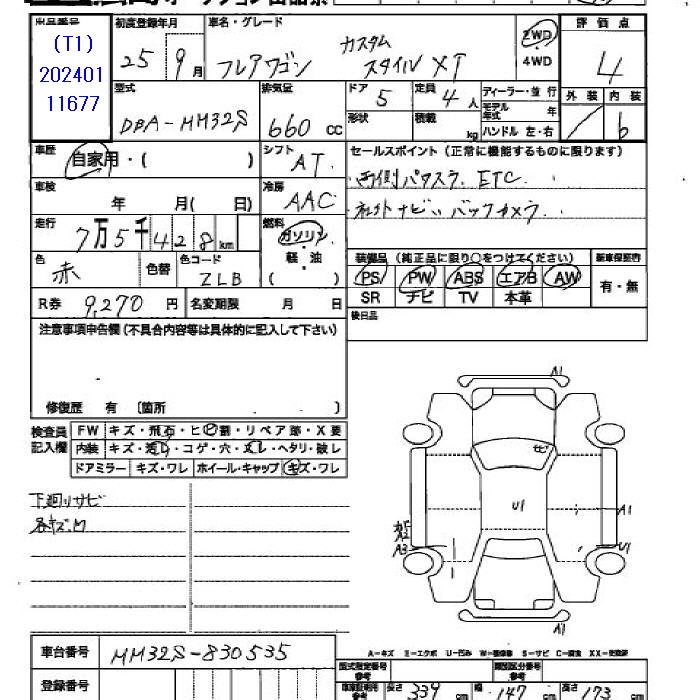 オークション出品票
出品番号 初度登録年月 車名・グレード 評価点
(T1) 202401 11677
25年 9月 フレアワゴン カスタムスタイル XT 2WD・4WD 4
型式 排気量 ドア 定員 ディーラー・並行 外装 内装
DBA-MM32S 660cc 5 4人 モデル年式 年 b
形状 積載 kg ハンドル 左・右
車歴 シフト セールスポイント(正常に機能するものに限ります)
自家用・( ) AT 両側パワスラ. ETC.
車検 冷房
年 月( 日) AAC 社外ナビ. バックカメラ.
走行 燃料
7万5千428km ガソリン・軽油 ( )
色 色替 色コード 装備品(純正品に限り○をつけてください) 新車保証書
赤 ZLB PS PW ABS エアB AW 有・無
SR ナビ TV 本革
R券 9,270円 名変期限 月 日 後日品
注意事項申告欄(不具合内容等は具体的に記入して下さい)
修復歴 有 〔箇所 〕
検査員記入欄 FW キズ・飛石・ヒビ割・リペア跡・X要
内装 キズ・汚レ・コゲ・穴・スレ・ヘタリ・破レ
ドアミラー キズ・ワレ ホイール・キャップ キズ・ワレ
下廻りサビ
各キズ.凹
A1
サビ
U1
A1
A3
U1
A1
A-キズ E-エクボ U-凹み W-補修跡 S-サビ C-腐食 XX-交換済
車台番号 MM32S-830535
登録番号
型式指定番号 参考 類別区分番号 参考
車庫証明用 参考 長さ 339cm 幅 147cm 高さ 173cm